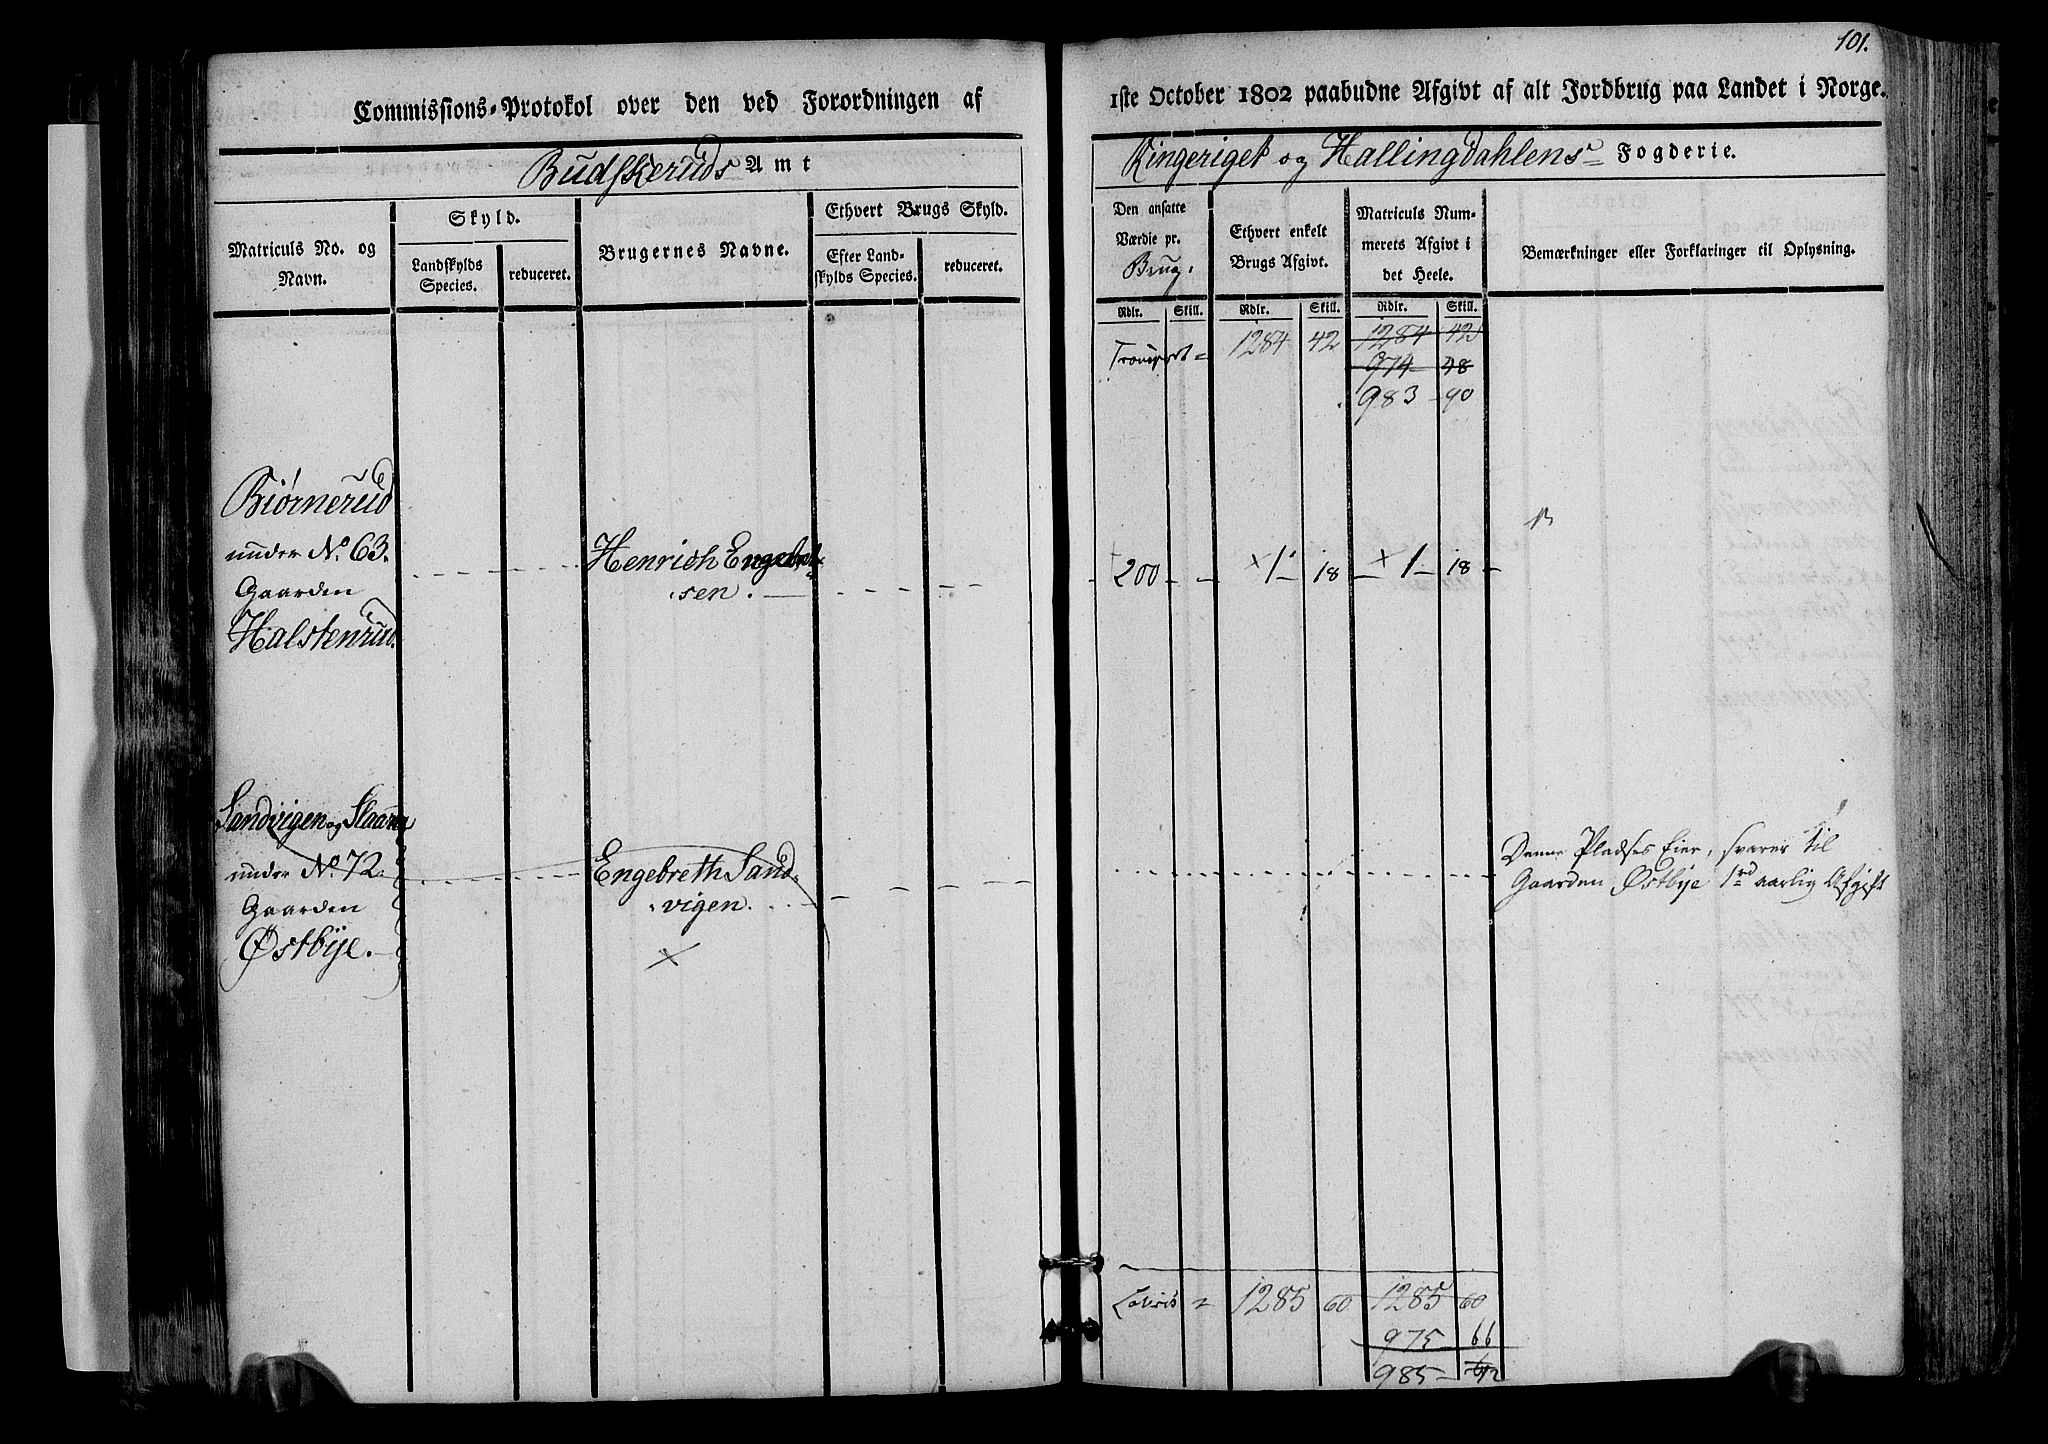 101.
Commissions-Protokol over den ved Forordningen af
1ste October 1802 paabudne Afgivt af alt Jordbrug paa Landet i Norge.
Budskeruds Amt
Ringeriget og Hallingdahlens Fogderie.
Matriculs No. og Navn.
Skyld.
Landskylds Species.
reduceret.
Brugernes Navne.
Ethvert Brugs Skyld.
Efter Landskylds Species.
reduceret.
Den ansatte Værdie pr. Brug.
Ethvert enkelt Brugs Afgivt.
Matriculs Nummerets Afgivt i det Heele.
Bemærkninger eller Forklaringer til Oplysning.
Rdlr. Skill. Rdlr. Skill. Rdlr. Skill.
Transport = 1284 42 1284 42
974 48
983 - 90
Biørnerud
under No. 63.
Gaarden
Halstenrud.
Henrich Engebret-
sen.
200 - - × 1 - 18 - × 1 - 18 -
Sandvigen og Slaaen
under No. 72.
Gaarden
Østbye.
Engebreth Sand-
vigen.
×
Denne Pladses Eier, svarer til
Gaarden Østbye 1 rd aarlig Afgift
Lateris = 1285 60 1285 60
975 66
985 -